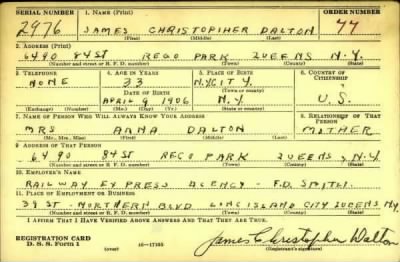 SERIAL NUMBER 1. NAME (Print) ORDER NUMBER
2976 JAMES CHRISTOPHER DALTON 77
(First) (Middle) (Last)
2. ADDRESS (Print)
6490 84 ST REGO PARK QUEENS N.Y.
(Number and street or R. F. D. number) (Town) (County) (State)
3. TELEPHONE 4. AGE IN YEARS 5. PLACE OF BIRTH 6. COUNTRY OF CITIZENSHIP
NONE 33 N.Y. CITY
(Town or county)
DATE OF BIRTH
APRIL 9 1906 N.Y. U.S.
(Exchange) (Number) (Mo.) (Day) (Yr.) (State or country)
7. NAME OF PERSON WHO WILL ALWAYS KNOW YOUR ADDRESS 8. RELATIONSHIP OF THAT PERSON
MRS ANNA DALTON MOTHER
(Mr., Mrs., Miss) (First) (Middle) (Last)
9. ADDRESS OF THAT PERSON
6490 84 ST REGO PARK QUEENS N.Y.
(Number and street or R. F. D. number) (Town) (County) (State)
10. EMPLOYER'S NAME
RAILWAY EXPRESS AGENCY - F.D.
11. PLACE OF EMPLOYMENT OR BUSINESS
39 ST - NORTHERN BLVD LONG ISLAND CITY QUEENS N.Y.
(Number and street or R. F. D. number) (Town) (County) (State)
I AFFIRM THAT I HAVE VERIFIED ABOVE ANSWERS AND THAT THEY ARE TRUE.
REGISTRATION CARD
D. S. S. Form 1 16-17105 James Christopher Dalton
(Registrant's signature)